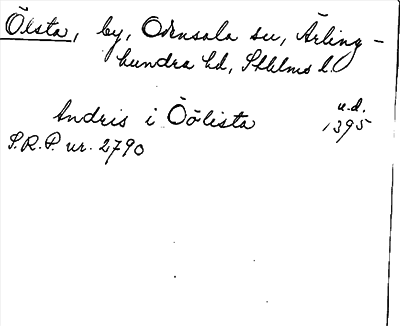 Ölsta, by, Odensala sn, Ärling-
hundra hd, Sthlms l.
u.d.
Andris i Öölista 1395
S.R.P. nr. 2790